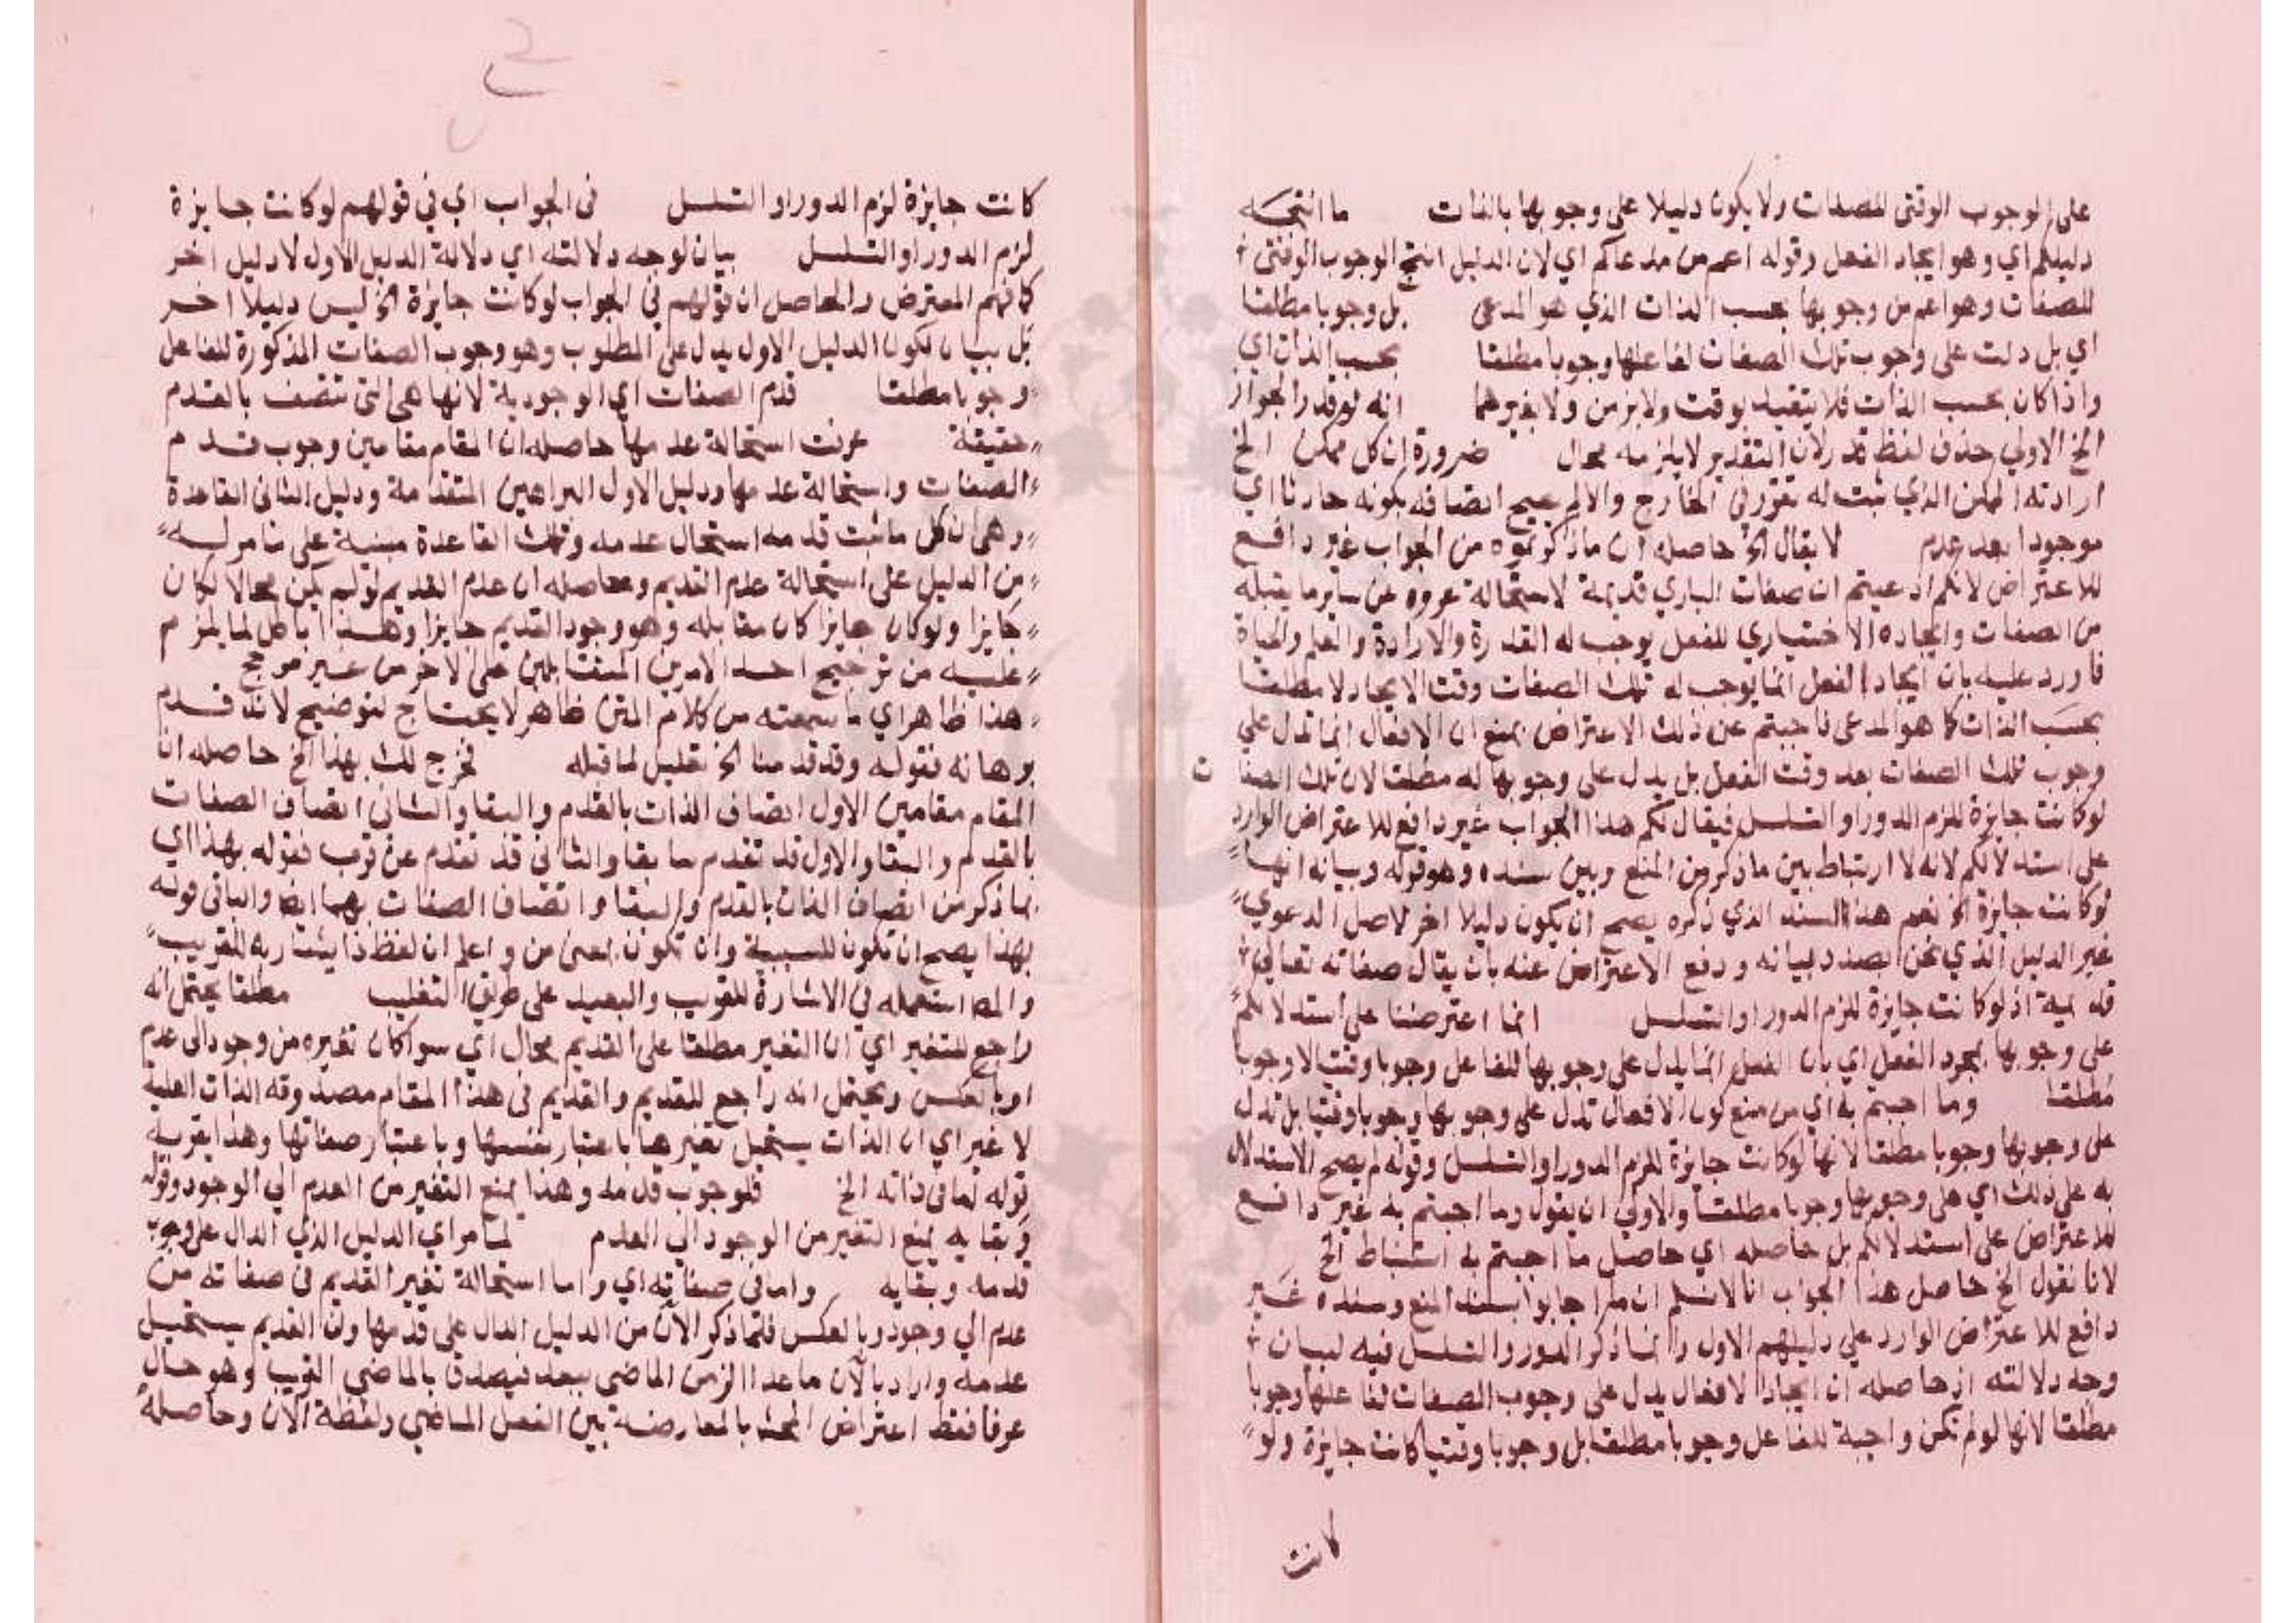 على الوجوب الوقتى للصفات ولا يكون دليلا على وجوبها بالذات ما انتجه
دليلكم اي وهو ايجاد الفعل وقوله اعم من مدعاكم اي لان الدليل انتج الوجوب الوقتى
للصفات وهو اعم من وجوبها بحسب الذات الذي هو المدعى بل وجوبا مطلقا
اي بل دلت على وجوب تلك الصفات لفاعلها وجوبا مطلقا بحسب الذات اي
واذا كان بحسب الذات فلا يتقيد بوقت ولا بزمن ولا بغيرهما انه لو قدر الجواز
الخ الاولي حذف لفظ قدر لان التقدير لا يلزمه محال ضرورة ان كل ممكن الخ
ارادته الممكن الذي ثبت له تقرر في الخارج والا لم يصح اتصافه بكونه حادثا اي
موجودا بعد عدم لا يقال الخ حاصله ان ما ذكرتموه من الجواب غير دافع
للاعتراض لانكم ادعيتم ان صفات الباري قديمة لاستحالة عروه عن ساير ما يقبله
من الصفات وايجاده الاختياري للفعل يوجب له القدرة والارادة والعلم والحياة
فاورد عليه بان ايجاد الفعل انما يوجب له تلك الصفات وقت الايجاد لا مطلقا
بحسب الذات كما هو المدعى فاجبتم عن ذلك الاعتراض بمنع ان الافعال انما تدل علي
وجوب تلك الصفات بعد وقت الفعل بل يدل على وجوبها له مطلقا لان تلك الصفات
لو كانت جايزة للزم الدور او التسلسل فيقال لكم هذا الجواب غير دافع للاعتراض الوارد
على استدلالكم لانه لا ارتباط بين ما ذكر من المنع وبين سنده وهو قوله وبيانه انها
لو كانت جايزة الخ نعم هذا السند الذي ذكره يصح ان يكون دليلا اخر لاصل الدعوي
غير الدليل الذي نحن بصدد بيانه ودفع الاعتراض عنه بان يقال صفاته تعالى
قديمة اذ لو كانت جايزة للزم الدور او التسلسل انما اعترضنا على استدلالكم
على وجوبها بمجرد الفعل اي بان الفعل انما يدل على وجوبها للفاعل وجوبا وقتيا لا وجوبا
مطلقا وما اجبتم به اي من منع كون الافعال تدل على وجوبها وجوبا وقتيا بل تدل
على وجوبها وجوبا مطلقا لانها لو كانت جايزة للزم الدور او التسلسل وقوله لم يصح الاستدلال
به على ذلك اي على وجوبها وجوبا مطلقا والاولي ان يقول وما اجبتم به غير دافع
للاعتراض على استدلالكم بل حاصله اي حاصل ما اجبتم به استنباط الخ
لانا نقول الخ حاصل هذا الجواب انا لا نسلم ان ما اجابوا بسند المنع وسنده غير
دافع للاعتراض الوارد علي دليلهم الاول وانما ذكر الدور والتسلسل فيه لبيان
وجه دلالته اذ حاصله ان ايجاد الافعال يدل على وجوب الصفات لفاعلها وجوبا
مطلقا لانها لو لم تكن واجبة للفاعل وجوبا مطلقا بل وجوبا وقتيا كانت جايزة ولو
كانت
كانت جايزة لزم الدور او التسلسل فى الجواب اي في قولهم لو كانت جايزة
لزم الدور او التسلسل بيان لوجه دلالته اي دلالة الدليل الاول لا دليل اخر
كما فهم المعترض والحاصل ان قولهم في الجواب لو كانت جايزة الخ ليس دليلا اخر
بل بيان لكون الدليل الاول يدل على المطلوب وهو وجوب الصفات المذكورة للفاعل
وجوبا مطلقا قدم الصفات اي الوجودية لانها هي التى تتصف بالقدم
حقيقة عرفت استحالة عدمها حاصله ان المقام مقامين وجوب قدم
الصفات واستحالة عدمها ودليل الاول البراهين المتقدمة ودليل الثانى القاعدة
وهى ان كل ما ثبت قدمه استحال عدمه وتلك القاعدة مبنية على ما مر له
من الدليل على استحالة عدم القديم وحاصله ان عدم القديم لو لم يكن محالا لكان
جايزا ولو كان جايزا كان مقابله وهو وجود القديم جايزا وهذا باطل لما يلزم
عليه من ترجيح احد الامرين المتقابلين على الاخر من غير مرجح
هذا ظاهر اي ما سمعته من كلام المتن ظاهر لا يحتاج لتوضيح لانه قدم
برهانه فقوله وقد قدمنا الخ تعليل لما قبله فخرج لك بهذا الخ حاصله ان
المقام مقامين الاول اتصاف الذات بالقدم والبقا والثانى اتصاف الصفات
بالقدم والبقا والاول قد تقدم سابقا والثانى قد تقدم عن قرب فقوله بهذا اي
بما ذكر من اتصاف الذات بالقدم والبقا واتصاف الصفات بهما ايضا والبا فى قوله
بهذا يصح ان تكون للسببية وان تكون بمعنى من واعلم ان لفظ ذا يشار به للقريب
والمص استعمله في الاشارة للقريب والبعيد على طريق التغليب مطلقا يحتمل انه
راجع للتغير اي ان التغير مطلقا على القديم محال اي سوا كان تغيره من وجود الى عدم
او بالعكس ويحتمل انه راجع للقديم والقديم فى هذا المقام مصدوقه الذات العلية
لا غير اي ان الذات يستحيل تغيرها باعتبار نفسها وباعتبار صفاتها وهذا يقربه
قوله اما فى ذاته الخ فلوجوب قدمه وهذا يمنع التغير من العدم الي الوجود وقوله
وبقايه يمنع التغير من الوجود الي العدم لما مر اي الدليل الذي الدال على وجوب
قدمه وبقايه واما فى صفاته اي واما استحالة تغير القديم فى صفاته من
عدم الي وجود وبالعكس فلما ذكر الآن من الدليل الدال على قدمها وان القديم يستحيل
عدمه واراد بالآن ما عدا الزمن الماضى ببعد فيصدق بالماضي القريب وهو حال
عرفا فقط اعتراض المحشى بالمعارضة بين الفعل الماضي ولفظة الآن وحاصله